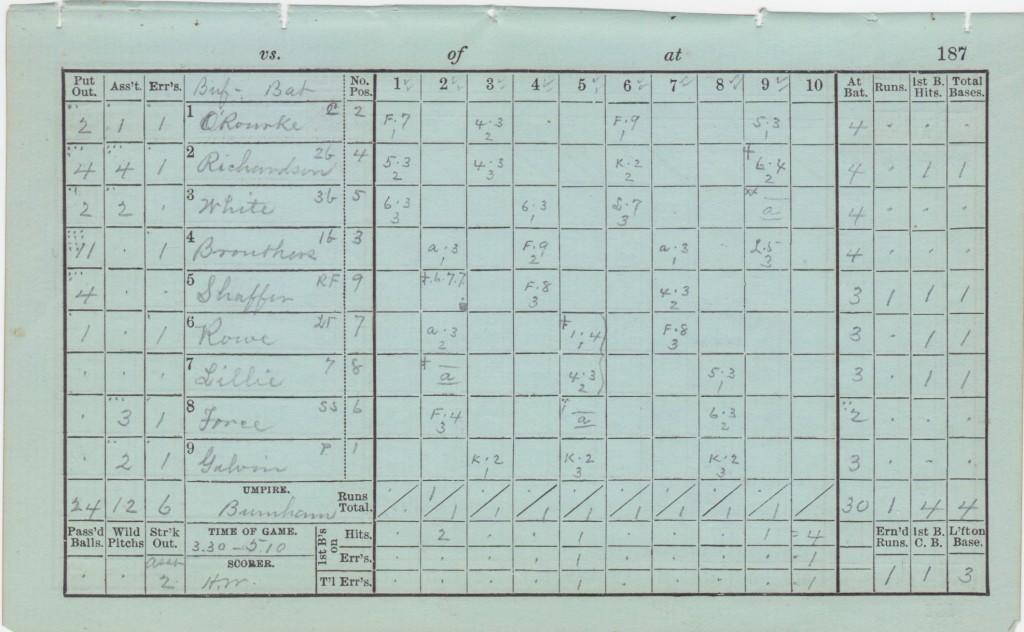 vs. of at 187
Put Out. Ass't. Err's. Buf- Bat No. Pos. 1 2 3 4 5 6 7 8 9 10 At Bat. Runs. 1st B. Hits. Total Bases.
2 1 1 1 O'Rourke C 2 F.7 1 4.3 2 F.9 1 5.3 1 4 . . .
4 4 1 2 Richardson 2b 4 5.3 2 4.3 3 K.2 2 6.4 2 4 . 1 1
2 2 . 3 White 3b 5 6.3 3 6.3 1 3 a 4 . . .
11 . 1 4 Brouthers 1b 3 a.3 1 F.9 2 a.3 1 L.5 3 4 . . .
4 . . 5 Shaffer RF 9 F.8 3 4.3 2 3 1 1 1
1 . 1 6 Rowe LF 7 a.3 2 1.4 1 F.8 3 3 . 1 1
. . . 7 Lillie 7 8 a 4.3 2 5.3 1 3 . 1 1
. 3 1 8 Force SS 6 F.4 3 a 6.3 2 2 . . .
. 2 1 9 Galvin P 1 K.2 1 K.2 3 K.2 3 3 . - .
24 12 6 UMPIRE. Burnham Runs Total. ./. 1/1 ./1 ./1 ./1 ./1 ./1 ./1 ./1 / 30 1 4 4
Pass'd Balls. Wild Pitchs Str'k Out. TIME OF GAME. 3.30-5.10 1st B's on Hits. . 2 . . 1 . . . 1 = 4 Ern'd Runs. 1st B. C. B. L'fton Base.
Err's. . . . . 1 . . . . 1
. . 2 SCORER. H.W. T'l Err's. . . . . 1 . . . . 1 1 1 3